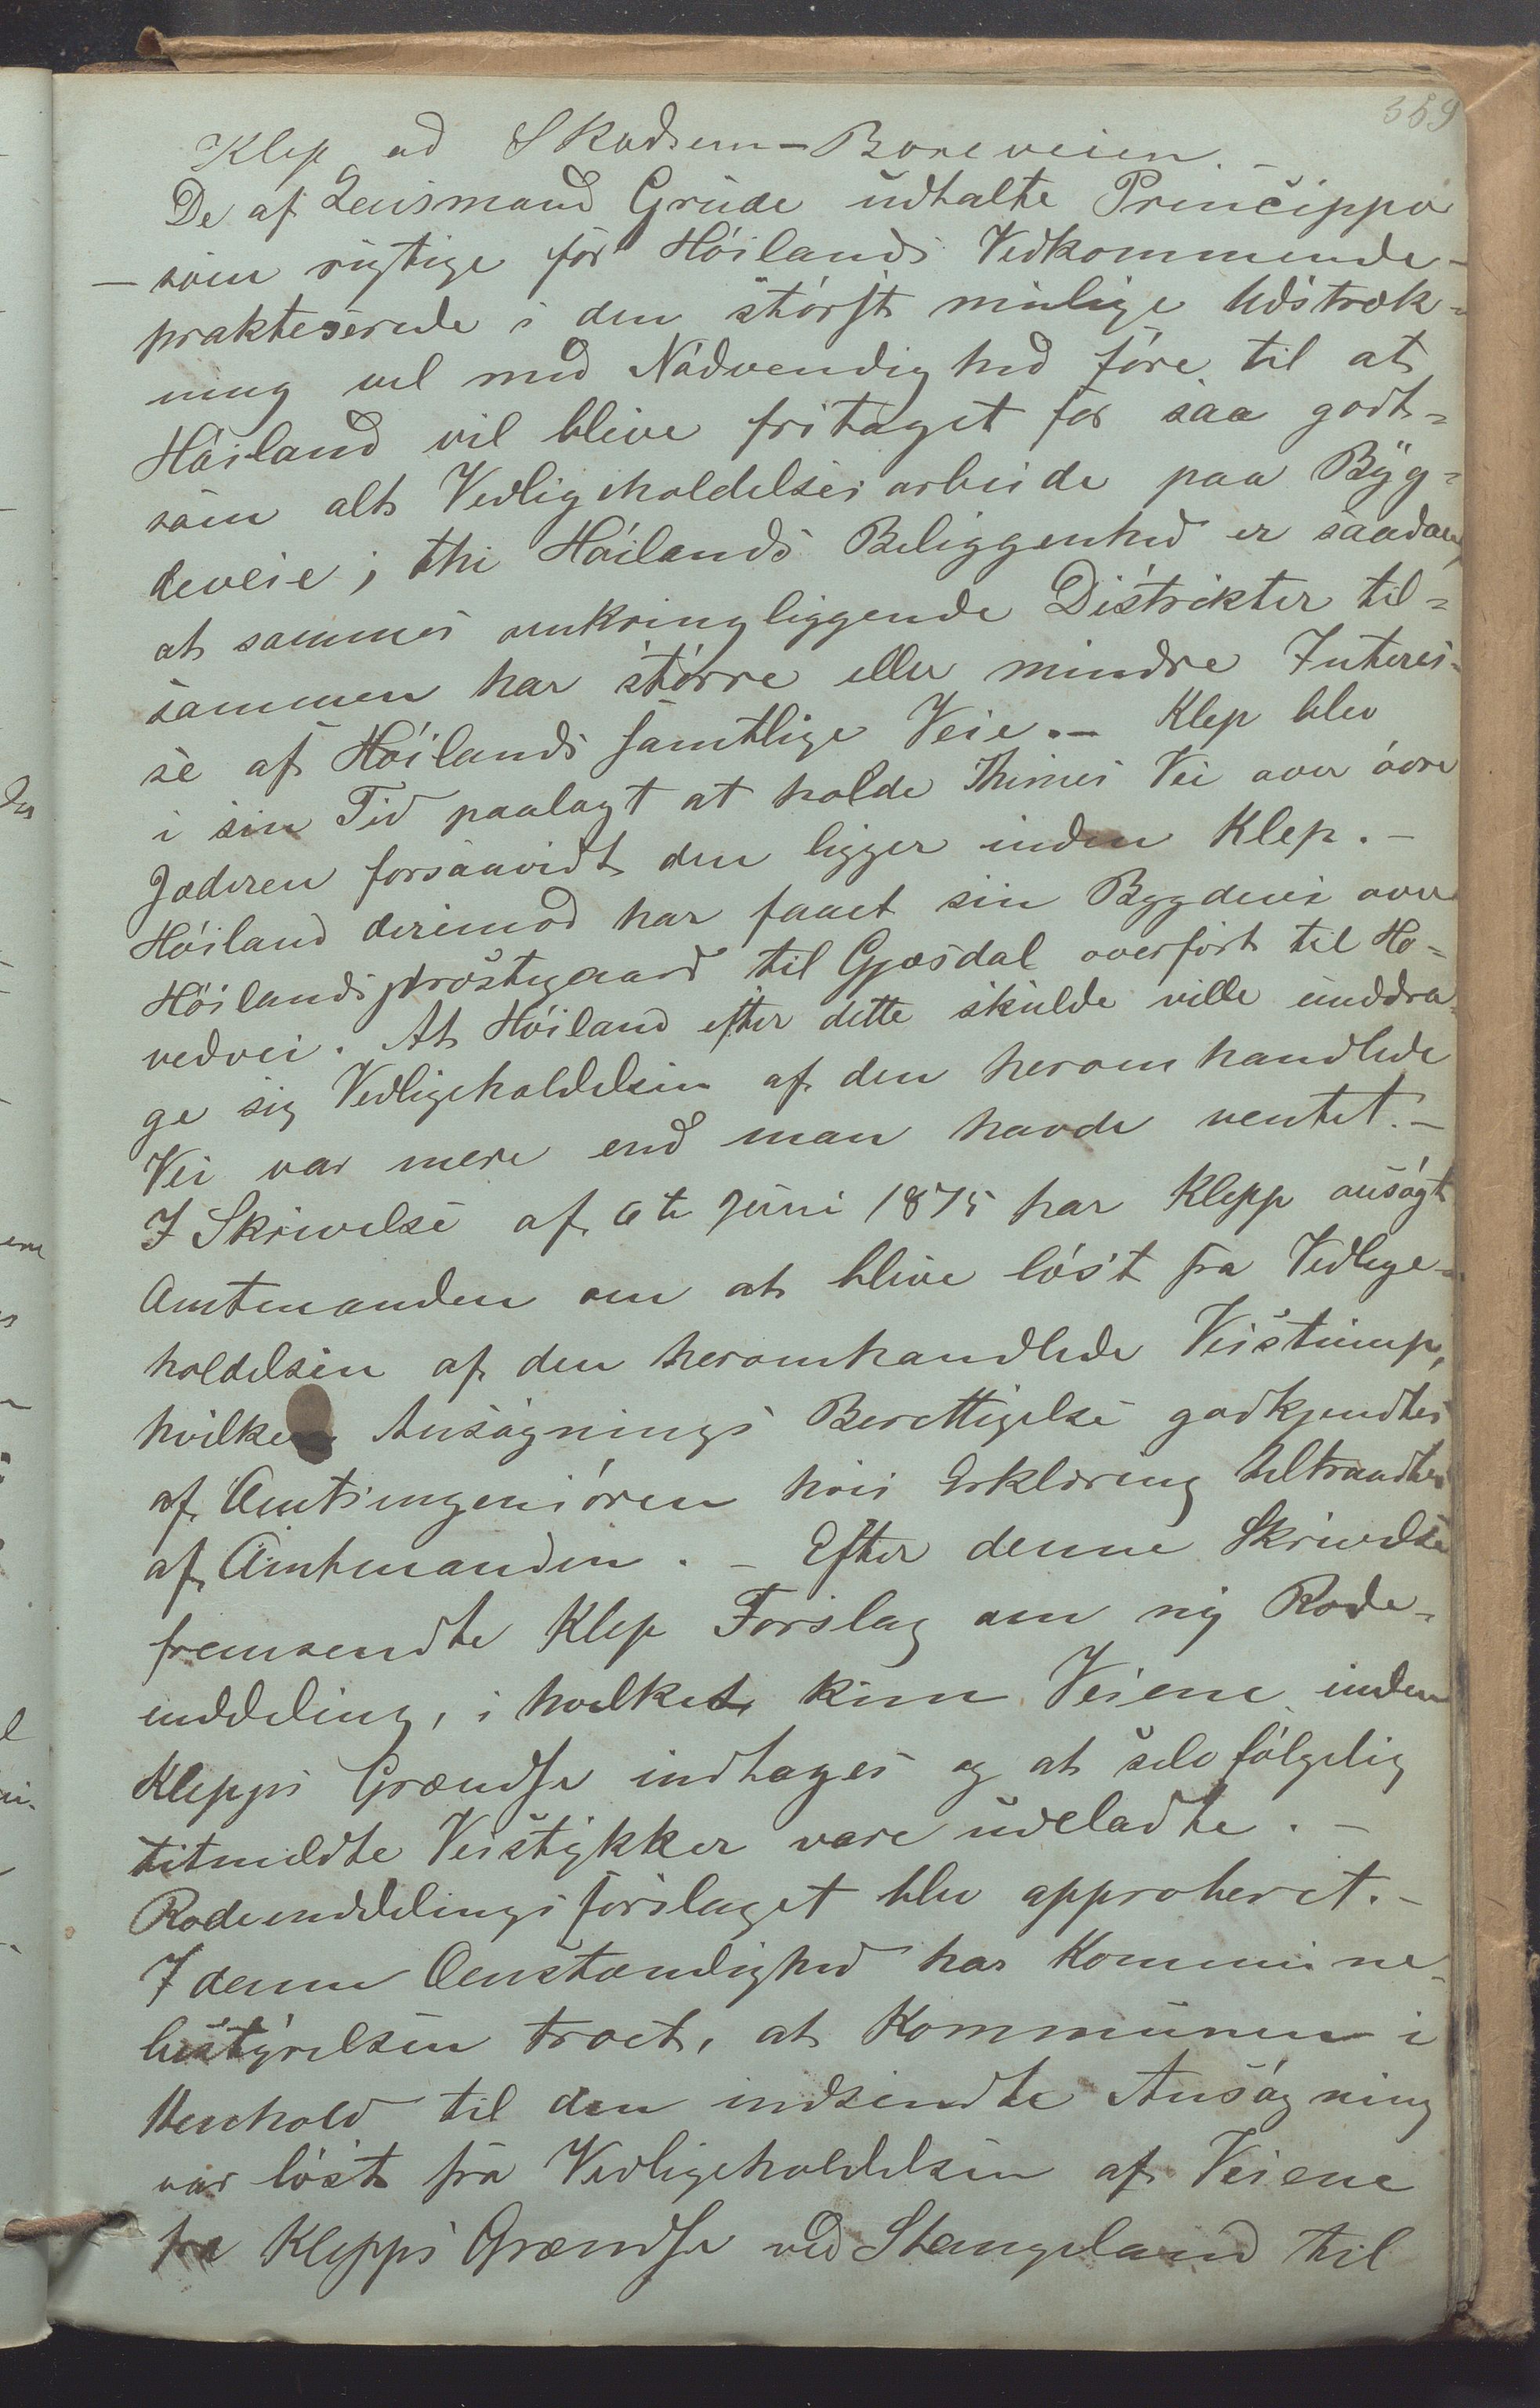 359
Klep ad Skadsem-Boreveien. -
De af Lensmand Grude udtalte Principper
- som rigtige for Höilands Vedkommende -
prakteserede i den störst mulige Udstræk-
ning vil med Nödvendighed före til at
Höiland vil blive fritaget for saa godt-
som alt Vedligeholdelsesarbeide paa Byg-
deveie; thi Höilands Beliggenhed er saadan,
at sammes omkringliggende Distrikter til-
sammen har större eller mindre Interes-
se af Höilands samtlige Veie. - Klep blev
i sin Tid paalagt at holde Thimes Vei over övre
Jæderen forsaavidt den ligger inden Klep. -
Höiland derimod har faaet sin Bygdevei over
Höilands prostegaard til Gjæsdal overfört til Ho-
vedvei. At Höiland efter dette skulde ville unddra-
ge sig Vedligeholdelsen af den heromhandlede
Vei var mere end man havde ventet. -
I Skrivelse af 6te Juni 1875 har Klepp ansögt
Amtmanden om at blive löst fra Vedlige-
holdelsen af den heromhandlede Veistump,
hvilken Ansögnings Berettigelse godkjendtes
af Amtsingeniören hvis Erklæring tiltraadtes
af Amtmanden. - Efter denne Skrivelse
fremsendte Klep Forslag om ny Rode-
inddeling, i hvilket kun Veiene inden
Klepps Grændse indtages og at selvfölgelig
titmeldte Veistykker vare udeladte. -
Rodeinddelingsforslaget blev approberet. -
I denne Omstændighed har Kommune-
bestyrelsen troet, at Kommunen i
Henhold til den indsendte Ansögning
var löst fra Vedligeholdelsen af Veiene
fra Klepps Grændse ved Stangeland til